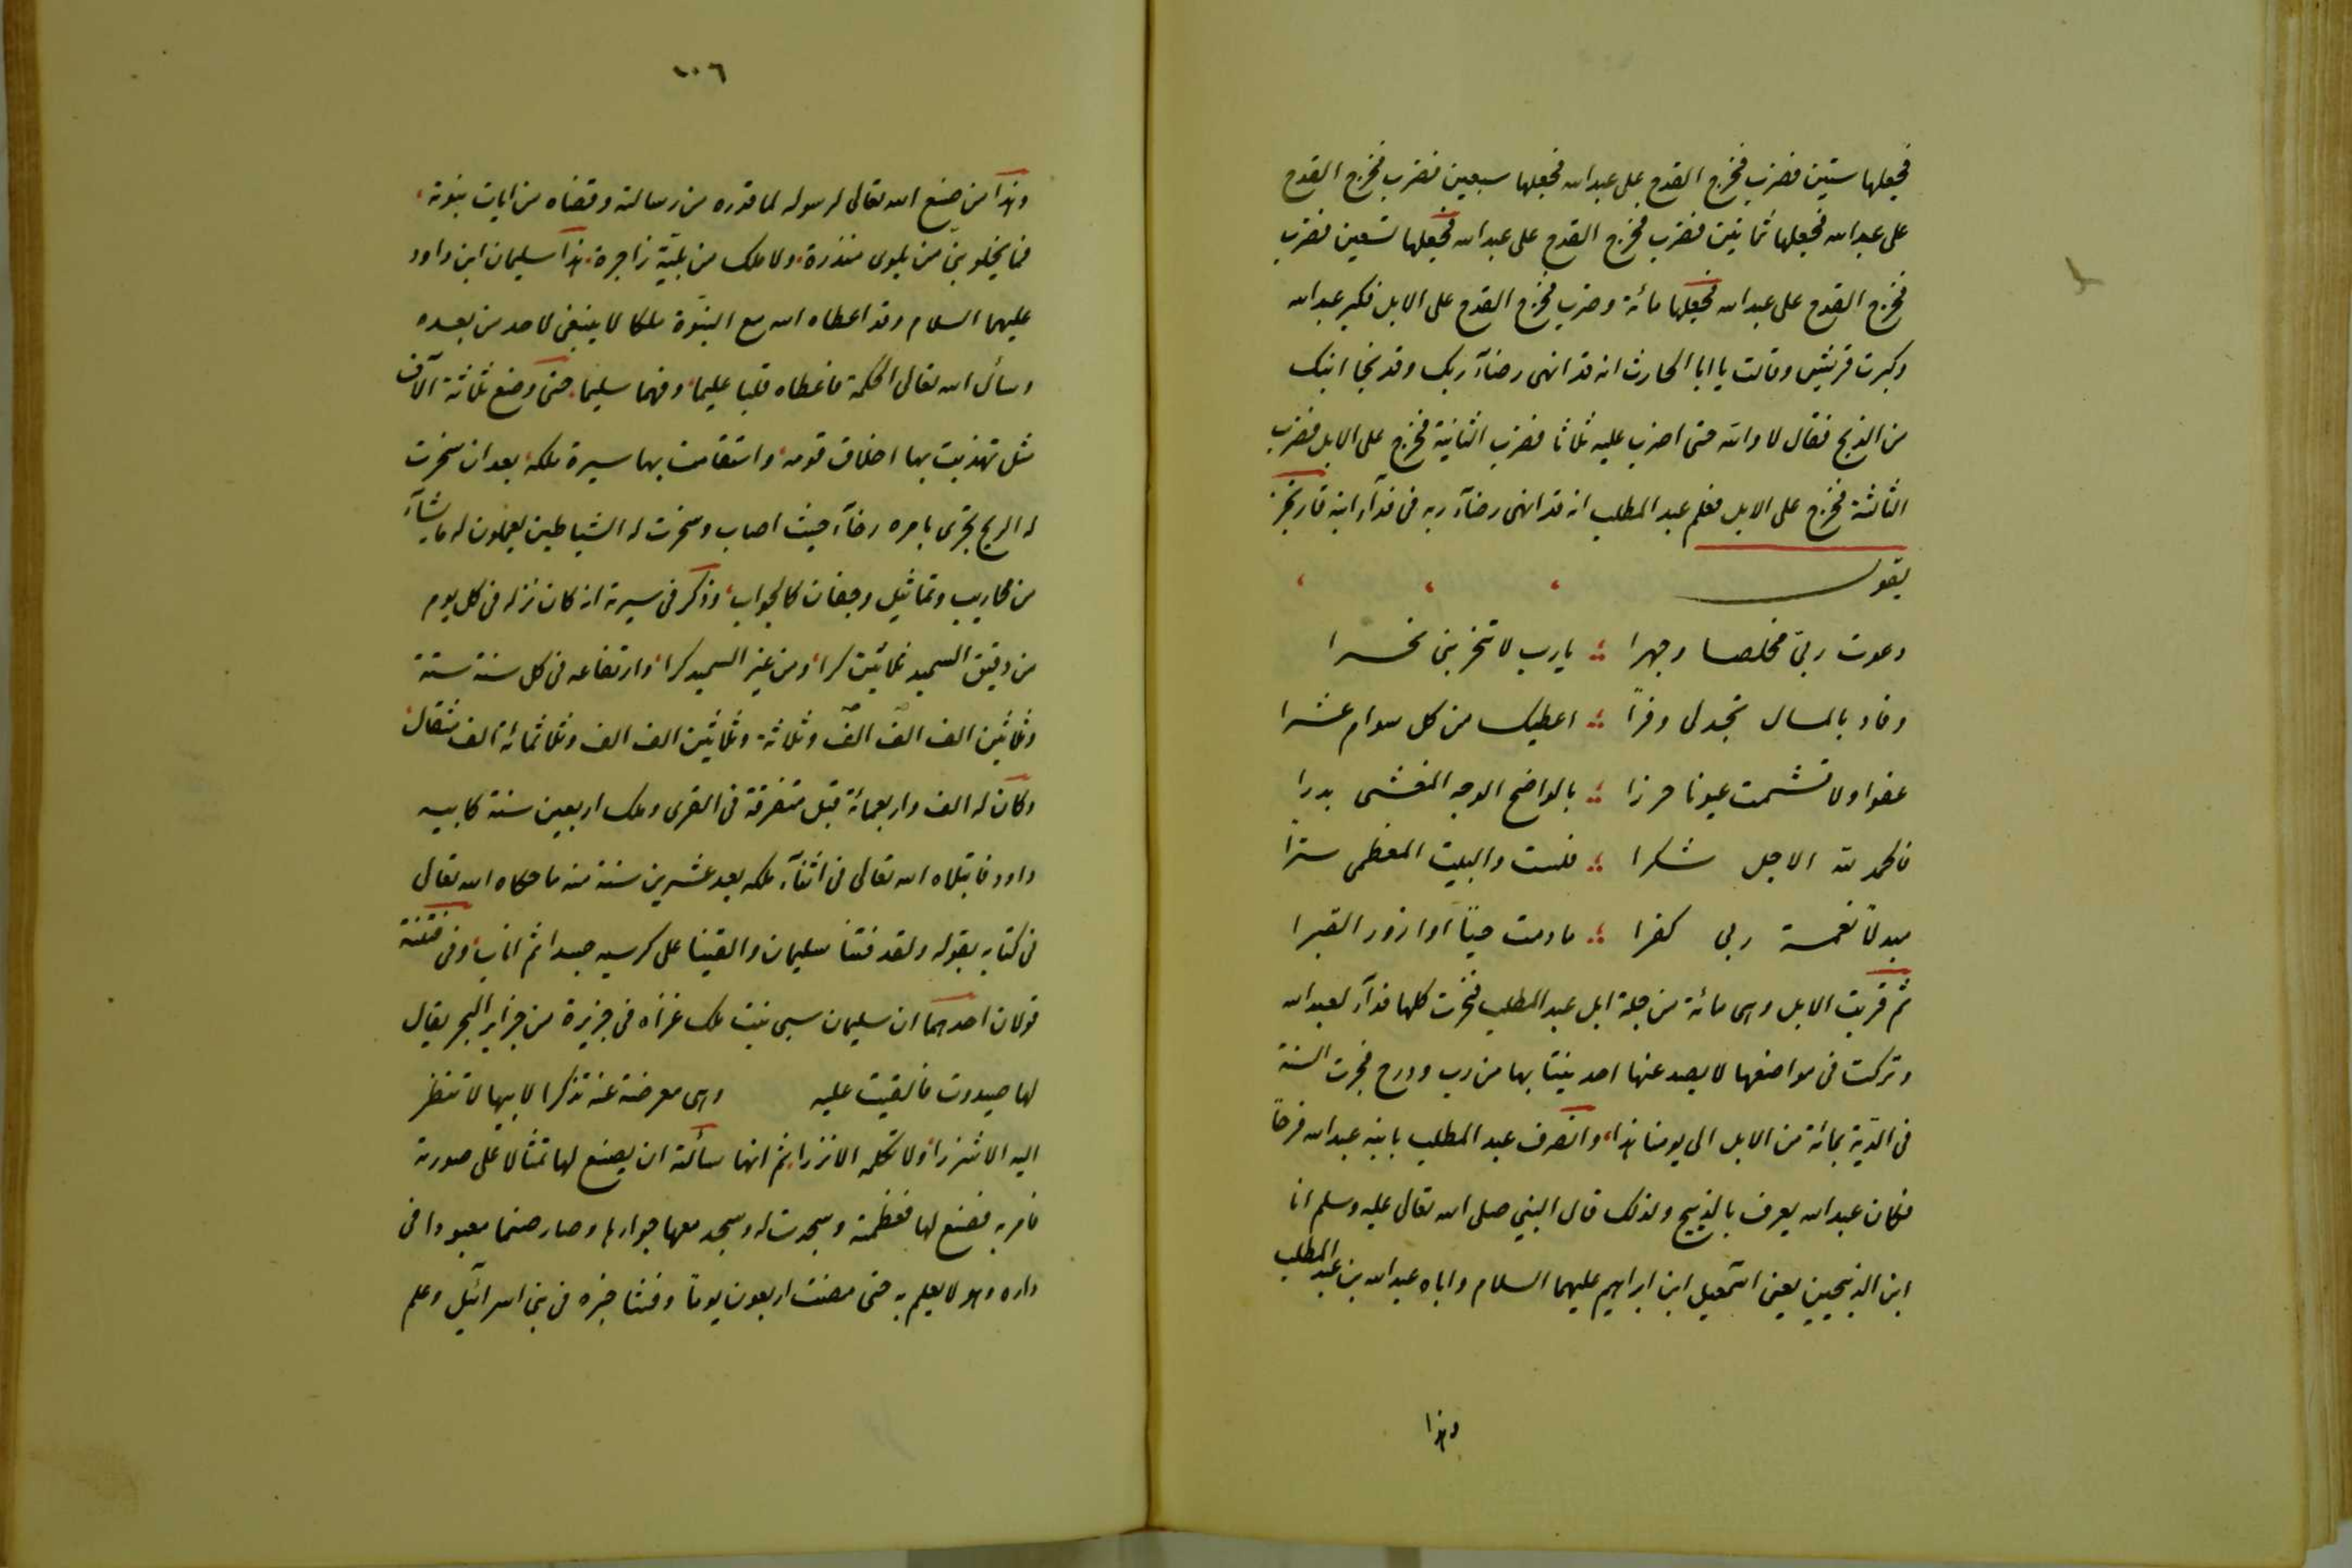 فجعلها ستين فضرب فخرج القدح على عبدالله فجعلها سبعين فضرب فخرج القدح
على عبدالله فجعلها ثمانين فضرب فخرج القدح على عبدالله فجعلها تسعين فضرب
فخرج القدح على عبدالله فجعلها مائة وضرب فخرج القدح على الابل فكبر عبدالله
وكبرت قريش وقالت يا ابا الحارث انه قد انهى رضآء ربك وقد نجا ابنك
من الذبح فقال لا والله حتى اضرب عليه ثلاثا فضرب الثانية فخرج على الابل فضرب
الثالثة فخرج على الابل فعلم عبد المطلب انه قد انهى رضآء ربه فى فدآء ابنه فارتجز
يقول
دعوت ربى مخلصا وجهرا ؛ يارب لا تنحر بنى نحرا
وفاد بالمال تجدلى وفرًا ؛ اعطيك من كل سوام عشرا
عفوا ولا تشمت عيونا حزرا ؛ بالواضح الوجه المغشى بدرا
فالحمد لله الاجل شكرا ؛ فلست والبيت المغطى سترًا
مبدلًا نعمة ربى كفرا ؛ مادمت حيًا او ازور القبرا
ثم قربت الابل وهى مائة من جملة ابل عبد المطلب فنحرت كلها فدآء لعبدالله
وتركت فى مواضعها لا يصد عنها احد ينتابها من دب ودرج فجرت السنة
فى الدية بمائة من الابل الى يومنا هذا، وانصرف عبد المطلب بابنه عبدالله فرحًا
فكان عبدالله يعرف بالذبيح ولذلك قال النبى صلى الله تعالى عليه وسلم انا
ابن الذبيحين يعنى اسمعيل ابن ابراهيم عليهما السلام واباه عبدالله بن عبد المطلب
وهذا
١٠٦
وهذا من صنع الله تعالى لرسوله لما قدره من رسالته وقضاه من ايات نبوته،
فما يخلو نبى من بلوى منذرة، ولا ملك من بلية زاجرة، هذا سليمان ابن داود
عليهما السلام وقد اعطاه الله مع النبوة ملكا لا ينبغى لاحد من بعده
وسأل الله تعالى الحكمة فاعطاه قلبا عليما، وفهما سليما، حتى وضع ثلاثة آلاف
مثل تهذبت بها اخلاق قومه، واستقامت بها سيرة ملكه، بعد ان سخرت
له الريح تجرى بامره رخآء حيث اصاب وسخرت له الشياطين يعملون له ما يشآء
من محاريب وتماثيل وجفان كالجواب، وذكر فى سيرته انه كان نزله فى كل يوم
من دقيق السميد ثمانين كرا، ومن غير السميد كرا، وارتفاعه فى كل سنة ستة
وثلاثين الف الف الف وثلاثة وثلاثين الف الف وثلاثمائة الف مثقال،
وكان له الف واربعمائة قبل متفرقة فى القرى وملك اربعين سنة كابيه
داود فابتلاه الله تعالى فى اثنآء ملكه بعد عشرين سنة منه ما حكاه الله تعالى
فى كتابه بقوله ولقد فتنا سليمان والقينا على كرسيه جسدا ثم اناب، وفى فتنته
قولان احدهما ان سليمان سبى بنت ملك غزاه فى جزيرة من جزاير البحر يقال
لها صيدون فالقيت عليه وهى معرضة عنه تذكرا لابيها لا تنظر
اليه الا شزرا، ولا تكلمه الا نزرا، ثم انها سألته ان يصنع لها تمثالا على صورته
فامر به فصنع لها فعظمته وسجدت له وسجد معها جواريها وصار صنما معبودا فى
داره وهو لا يعلم به حتى مضت اربعون يومًا وفشا خبره فى بنى اسرائيل وعلم